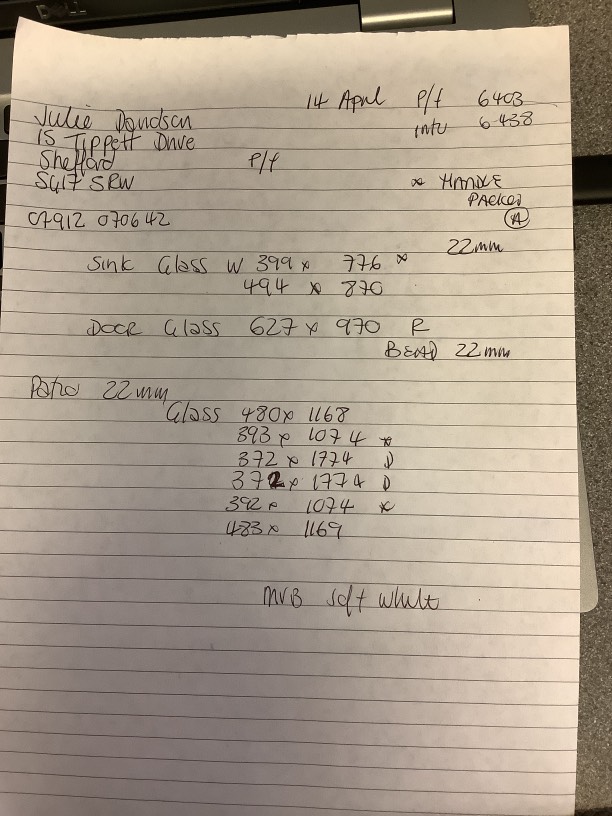 DELL
14 April P/f 6403
Julie Davidson intu 6438
15 Tippett Drive
Shefford P/f
SG17 5RW * HANDLE
PACKED
07912 070642 A
22mm
Sink Glass W 399 x 776 *
494 x 870
DOOR Glass 627 x 970 R
BEAD 22mm
Patio 22mm
Glass 480 x 1168
393 x 1074 *
372 x 1774 D
372 x 1774 D
392 x 1074 *
483 x 1169
MVB Soft White